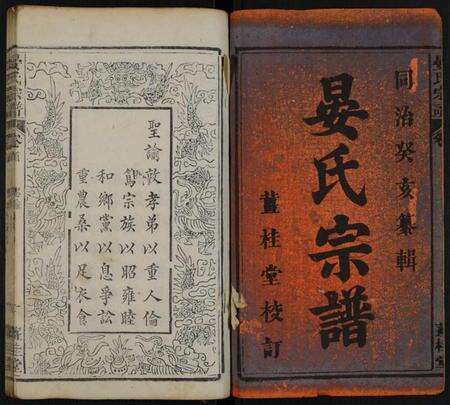 同治癸亥纂輯
晏氏宗譜
藍桂堂校訂
聖諭敦孝弟以重人倫
篤宗族以昭雍睦
和鄉黨以息爭訟
重農桑以足衣食
晏氏宗譜